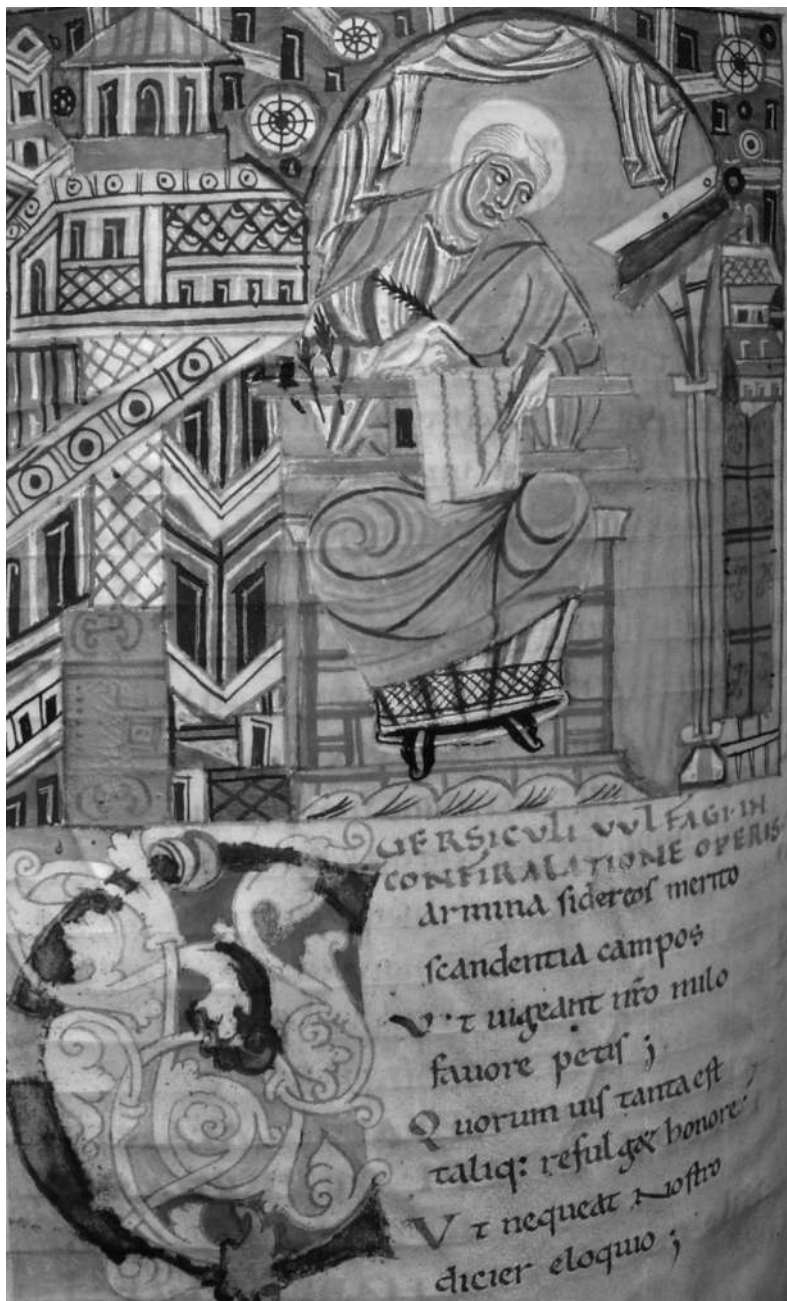 VERSICULI VULFAGI IN
CONFIRALATIONE OPERIS
Carmina sidereos merito
scandentia campos
Vt uigeant nro milo
fauore petis ;
Quorum uis tanta est
taliq: refulget honore:
Vt nequeat Nostro
dicier eloquio ;